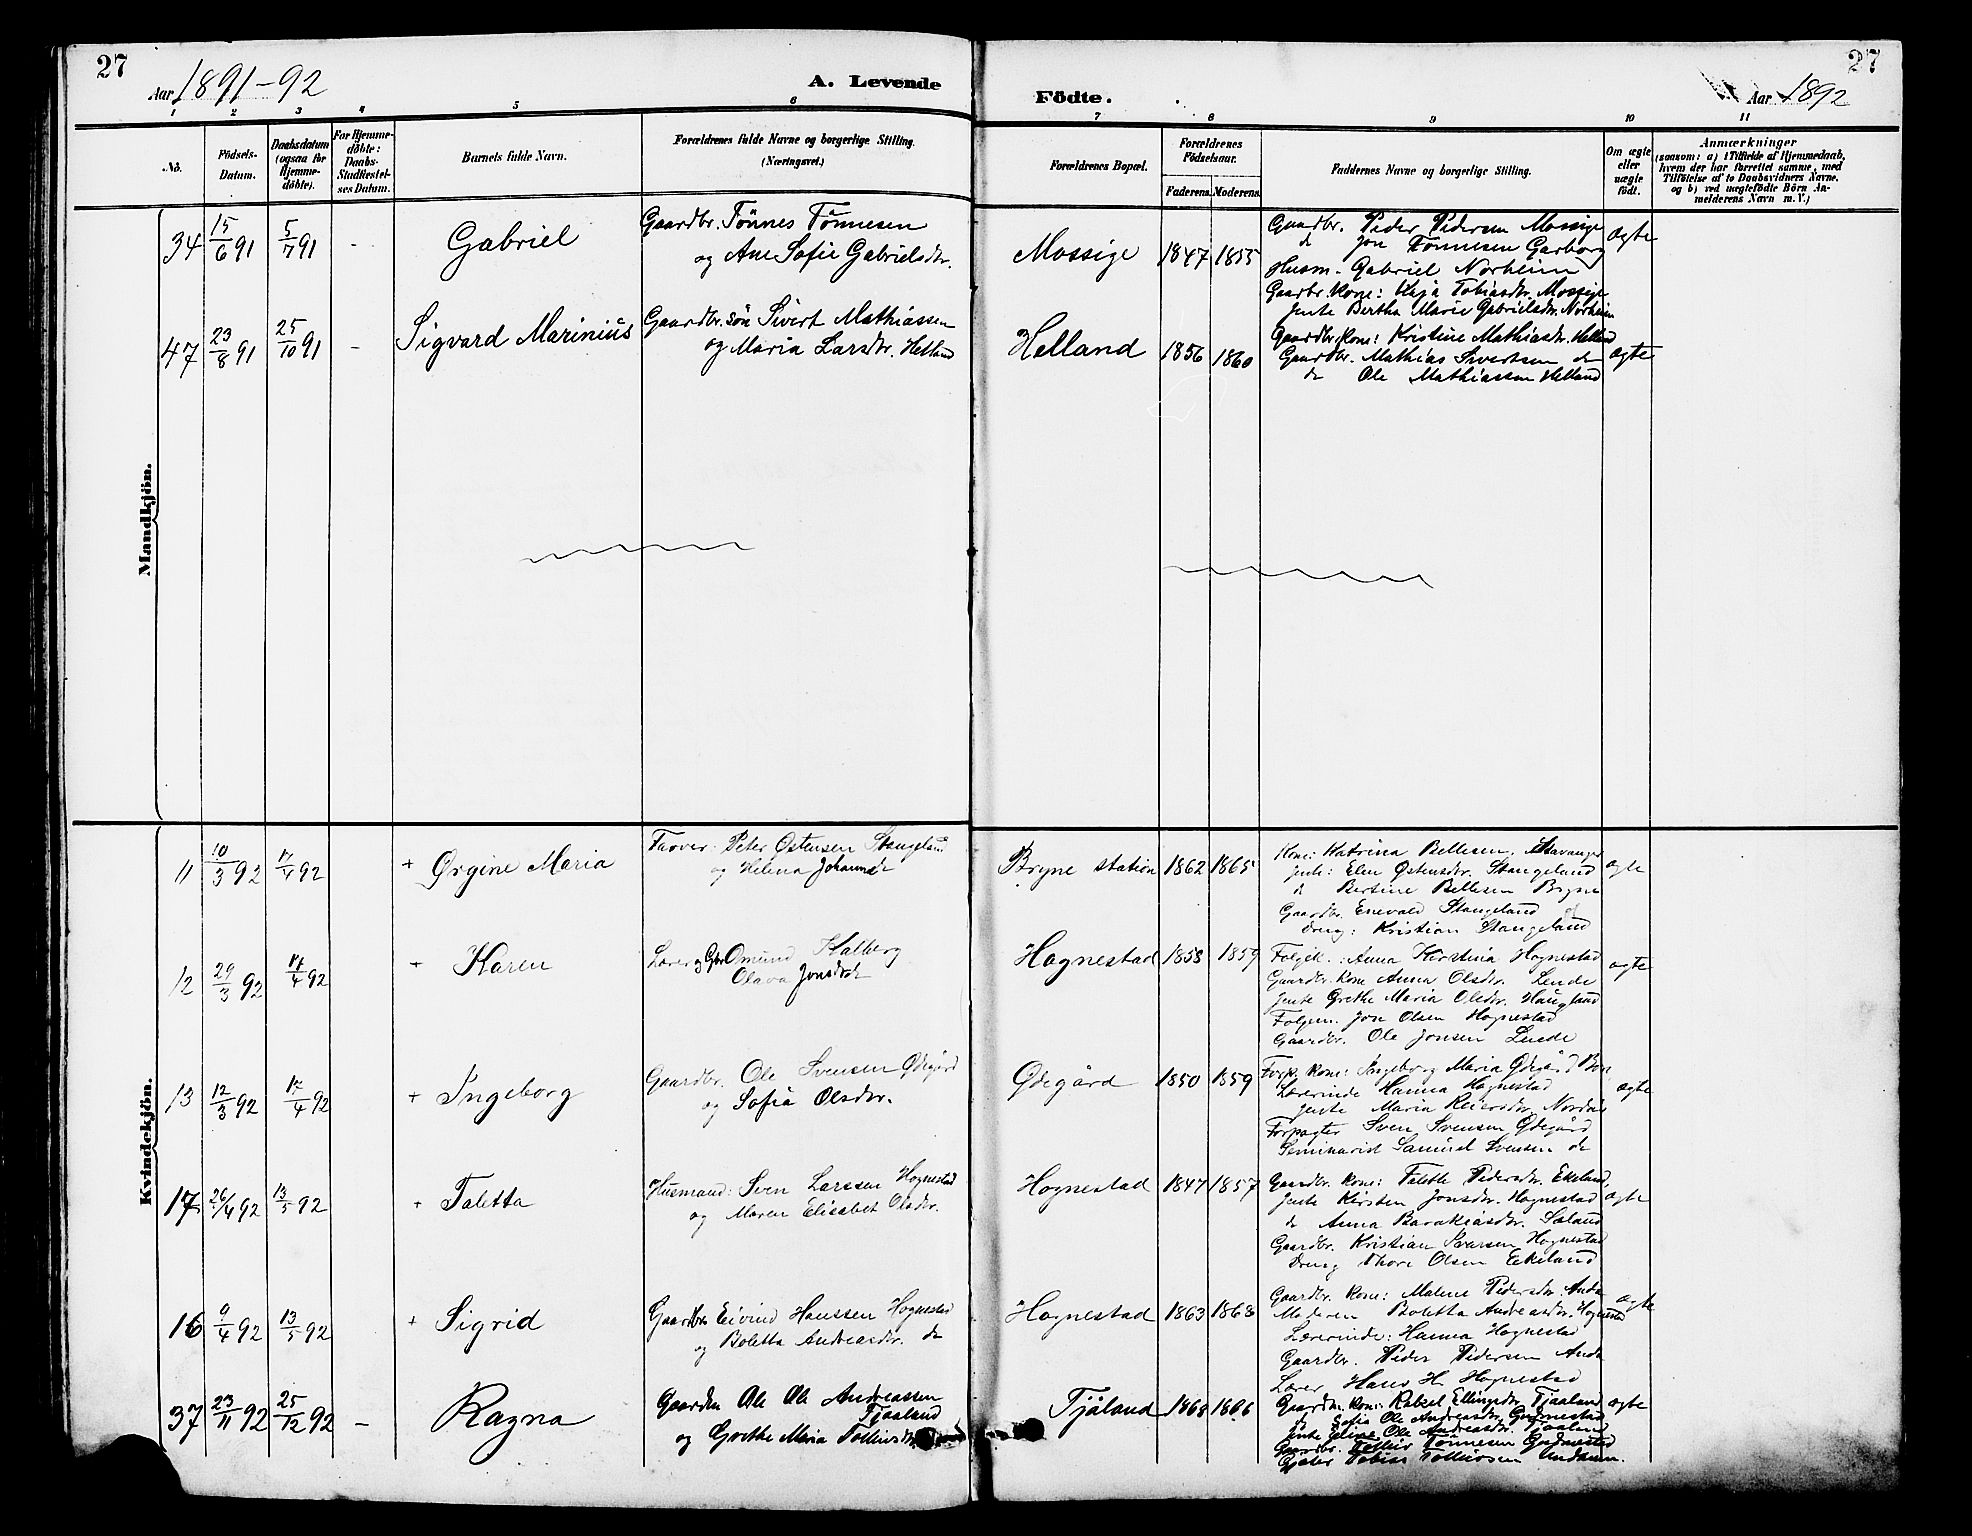 27
Aar 1891-92
A. Levende
Födte.
Aar 1892
27
1 2 3 4 5 6 7 8 9 10 11
No.
Födsels-
Datum.
Daabsdatum
(ogsaa for
Hjemme-
döbte).
For Hjemme-
döbte:
Daabs-
Stadfæstel-
ses Datum.
Barnets fulde Navn.
Forældrenes fulde Navne og borgerlige Stilling.
(Næringsvei.)
Forældrenes Bopæl.
Forældrenes
Födselsaar.
Faderens. Moderens.
Faddernes Navne og borgerlige Stilling.
Om ægte
eller
uægte
födt.
Anmærkninger
(saasom: a) i Tilfælde af Hjemmedaab,
hvem der har forrettet samme, med
Tilföielse af to Daabsvidners Navne.
og b) ved uægtefödte Börn An-
melderens Navn m. V.)
Mandkjön.
34 15/6 91 5/7 91 - Gabriel
Gaardbr. Tönnes Tönnesen
og Ane Sofie Gabrielsdtr.
Mossige 1847 1855
Gaardbr. Peder Pedersen Mossige
do Jon Tönnesen Garborg
Husm. Gabriel Norheim
Gaardbr. Kone: Maja Tobiasdtr. Mossige
Jente Bertha Marie Gabrielsdtr. Norheim
ægte
47 23/8 91 25/10 91 - Sigvard Marinius
Gaardbr. sön Sivert Mathiassen
og Maria Larsdtr. Helland
Helland 1856 1860
Gaardbr. Kone: Kristine Mathiasdtr. Helland
Gaardbr. Mathias Sivertsen do
do Ole Mathiassen Helland
ægte
Kvindekjön.
11 10/3 92 17/4 92 + Ørgine Maria
Farver: Peter Østensen Stangeland
og Helena Johannesdtr
Bryne station 1862 1865
Kone: Katrina Bellesen. Stavanger
Jente: Elen Østensdtr. Stangeland
do Bertine Bellesen Bryne
Gaardbr. Enevald Stangeland
Dreng: Kristian Stangeland
ægte
12 29/3 92 17/4 92 + Karen
Lærer og Gbr Omund Kalberg
Olava Jonsdtr
Hognestad 1858 1859
Folgek.: Anna Kirstina Hognestad
Gaardbr. Kone Anna Olsdtr. Lende
Jente Grethe Maria Olsdtr. Haugland
Folgem. Jon Olsen Hognestad
Gaardbr. Ole Jonsen Lende
ægte
13 12/3 92 17/4 92 + Ingeborg
Gaardbr. Ole Svensen Ødegård
og Sofia Olsdtr.
Ødegård 1850 1859
Forp. Kone: Ingeborg Maria Ødegård
Lærerinde Hanna Hognestad
Jente Maria Reiersdtr.
Forpagter Sven Svensen Ødegård
Seminarist Samuel Svensen do
ægte
17 26/4 92 13/5 92 + Taletta
Husmand: Sven Larssen Hognestad
og Maren Elisabet Olsdtr.
Hognestad 1847 1857
Gaardbr. Kone: Talette Pedersdtr. Ekeland
Jente Kirsten Jonsdtr. Hognestad
do Anna Barakiasdtr. Såland
Gaardbr. Kristian Ivarsen Hognestad
Dreng Thore Olsen Ekeland
ægte
16 9/4 92 13/5 92 + Sigrid
Gaardbr Eivind Hanssen Hognestad
og Boletta Andreasdtr. do
Hognestad 1863 1868
Gaardbr. Kone: Malene Pedersdtr Anda
Moderen Boletta Andreasdtr. Hognestad
Lærerinde: Hanna Hognestad
Gaardbr. Peder Pedersen Anda
Lærer Hans H. Hognestad
ægte
37 23/11 92 25/12 92 - Ragna
Gaardm Ole Ole Andreassen
Tjaaland
og Grethe Maria Tollevsdtr
Tjåland 1868 1866
Gaardm. Kone: Rakel Ellingsdtr. Tjaaland
do Sofia Ole Andreasdtr. Gudmestad
Jente Eline Ole Andreasdtr. Tjaaland
Gaardbr. Tollev Tönnesen Gudmestad
Gjeter Tobias Tollevsen Undheim.
ægte